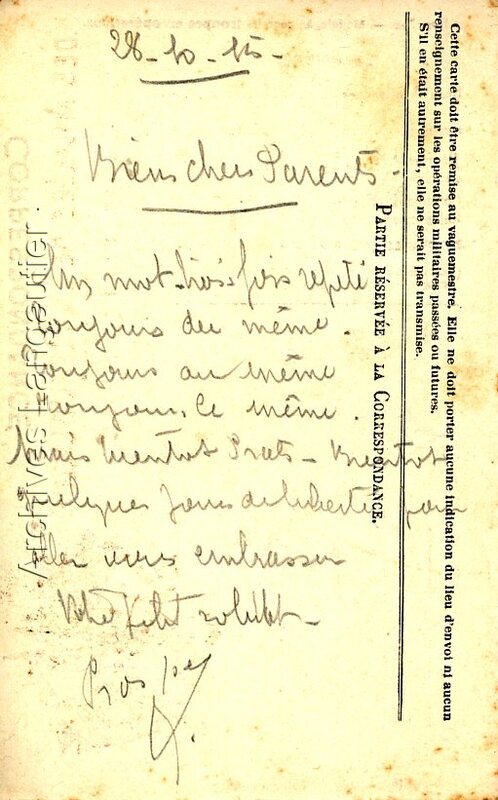 28-10-15-
Biens chers Parents-
Un mot trois fois répété
toujours du même.
toujours au même
toujours le même.
Mais bientot Prats - Bientot
quelques jours de liberté pour
aller vous embrasser
Votre petit soldat-
Prosper
Cette carte doit être remise au vaguemestre. Elle ne doit porter aucune indication du lieu d'envoi ni aucun
renseignement sur les opérations militaires passées ou futures.
S'il en était autrement, elle ne serait pas transmise.
PARTIE RÉSERVÉE À LA CORRESPONDANCE.